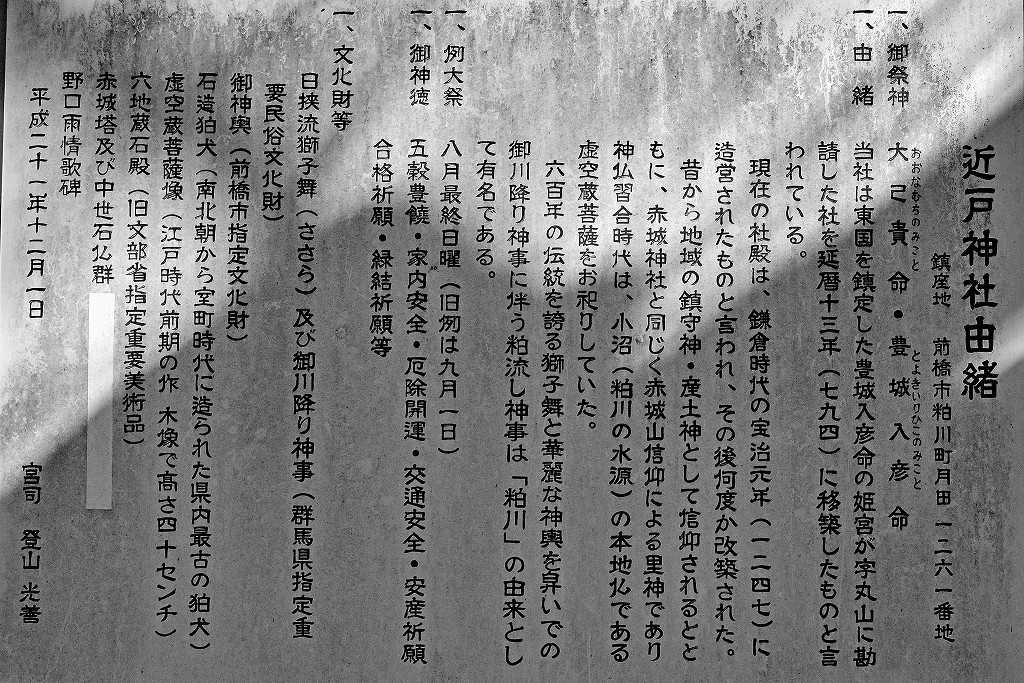 近戸神社由緒
鎮座地　前橋市粕川町月田一二六一番地
一、御祭神　大己貴命・豊城入彦命
おおなむちのみこと　とよきいりひこのみこと
一、由緒　当社は東国を鎮定した豊城入彦命の姫宮が字丸山に勘
請した社を延暦十三年（七九四）に移築したものと言
われている。
現在の社殿は、鎌倉時代の宝治元年（一二四七）に
造営されたものと言われ、その後何度か改築された。
昔から地域の鎮守神・産土神として信仰されるとと
もに、赤城神社と同じく赤城山信仰による里神であり
神仏習合時代は、小沼（粕川の水源）の本地仏である
虚空蔵菩薩をお祀りしていた。
六百年の伝統を誇る獅子舞と華麗な神輿を舁いでの
御川降り神事に伴う粕流し神事は「粕川」の由来とし
て有名である。
一、例大祭　八月最終日曜（旧例は九月一日）
一、御神徳　五穀豊饒・家内安全・厄除開運・交通安全・安産祈願
合格祈願・縁結祈願等
一、文化財等
日挟流獅子舞（ささら）及び御川降り神事（群馬県指定重
要民俗文化財）
御神輿（前橋市指定文化財）
石造狛犬（南北朝から室町時代に造られた県内最古の狛犬）
虚空蔵菩薩像（江戸時代前期の作　木像で高さ四十センチ）
六地蔵石殿（旧文部省指定重要美術品）
赤城塔及び中世石仏群
野口雨情歌碑
平成二十一年十二月一日
宮司　登山　光善